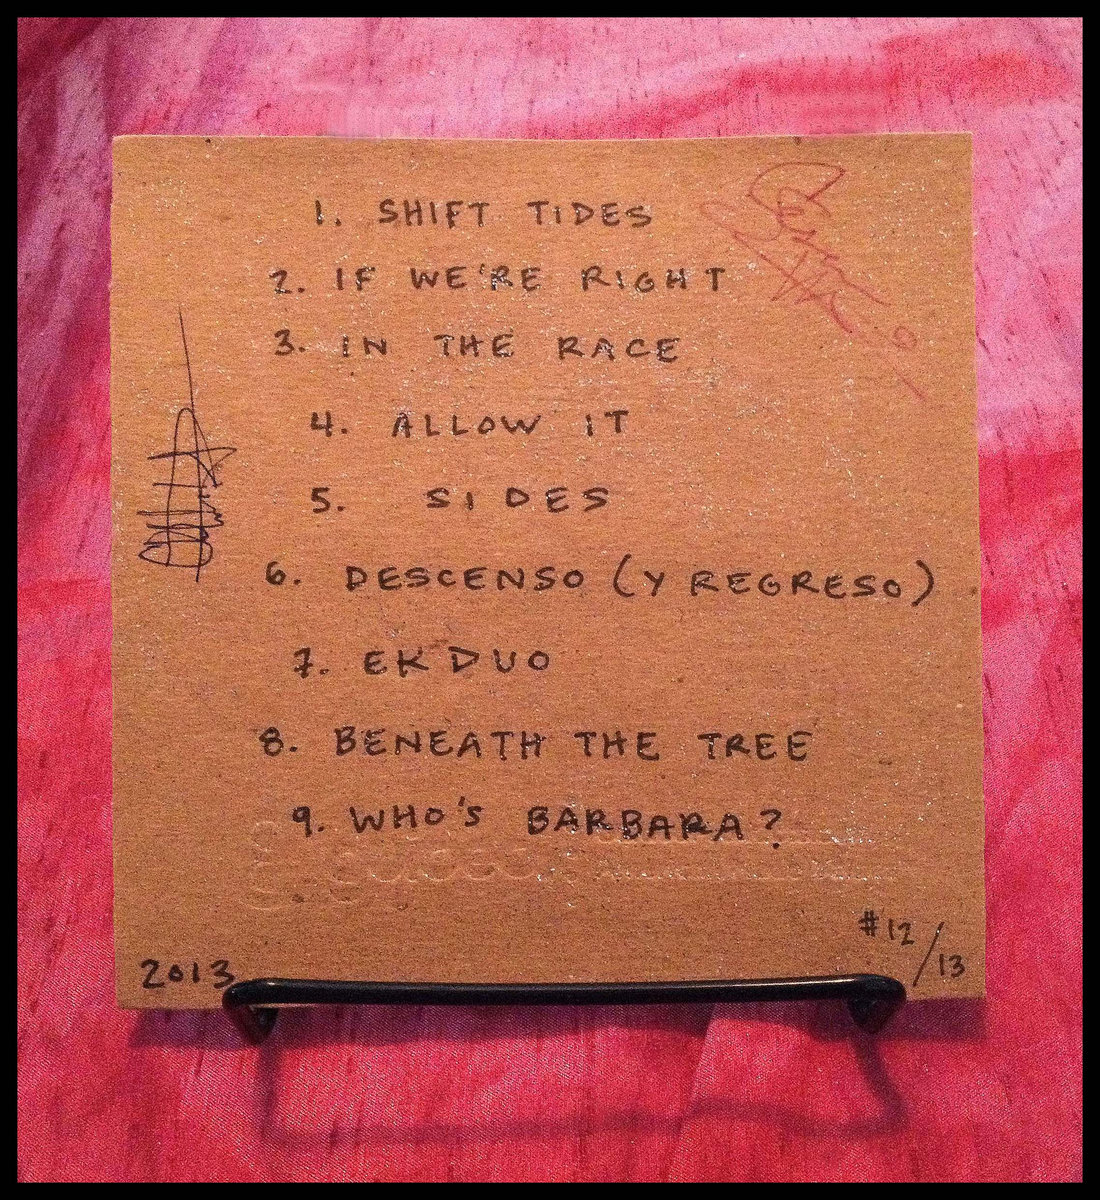 1. SHIFT TIDES
2. IF WE'RE RIGHT
3. IN THE RACE
4. ALLOW IT
5. SIDES
6. DESCENSO (Y REGRESO)
7. EK DUO
8. BENEATH THE TREE
9. WHO'S BARBARA?
#12/13
2013